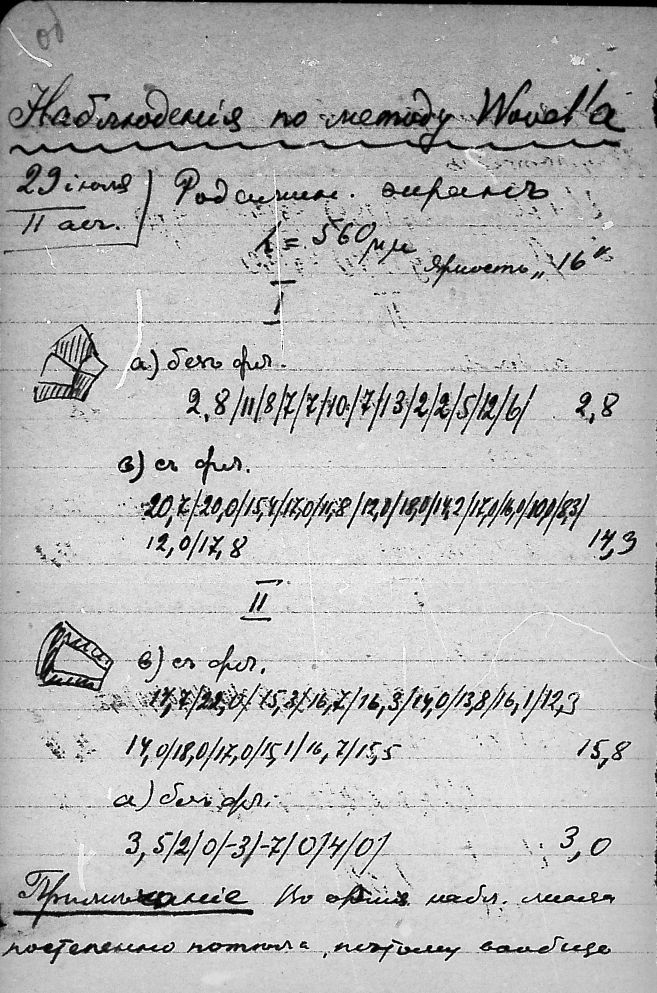 Наблюденія по методу Wovel'а
29 іюля
II
Родамин. экранъ
λ = 560 μμ
Яркость „16"
I
а) безъ фил.
2,8/11/8/7/7/10/7/13/2/2/5/12/6/ 2,8
в) съ фил.
20,7/20,0/15,4/17,0/11,8/12,0/18,0/14,2/17,0/16,0/10,0/8,3/
12,0/17,8 14,3
II
в) съ фил.
17,7/22,0/15,3/16,7/16,3/14,0/13,8/16,1/12,3
14,0/18,0/17,0/15,1/16,7/15,5 15,8
а) безъ фил.
3,5/2/0/-3/-7/0/4/0/ 3,0
Примѣчаніе Во время набл. лампа
постепенно потухла, поэтому вообще